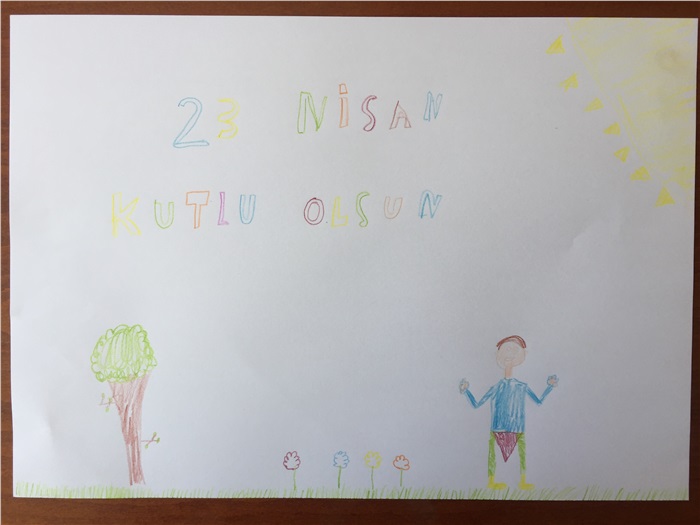 23 NİSAN
KUTLU OLSUN